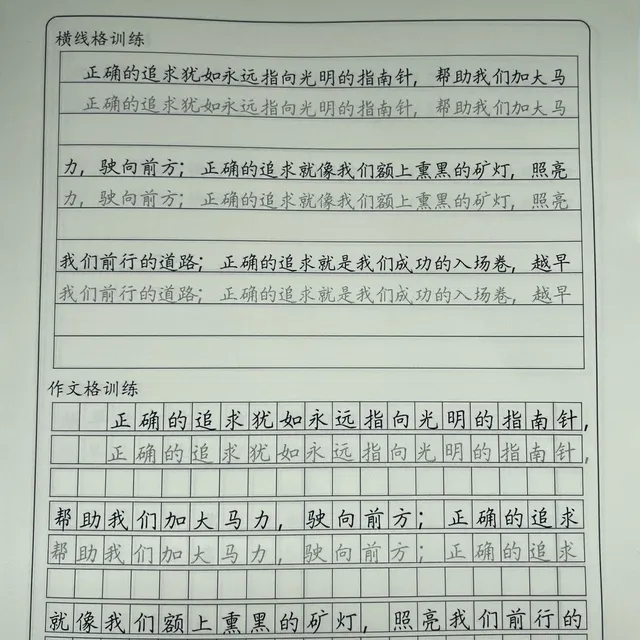 横线格训练
正确的追求犹如永远指向光明的指南针，帮助我们加大马
正确的追求犹如永远指向光明的指南针，帮助我们加大马
力，驶向前方；正确的追求就像我们额上熏黑的矿灯，照亮
力，驶向前方；正确的追求就像我们额上熏黑的矿灯，照亮
我们前行的道路；正确的追求就是我们成功的入场卷，越早
我们前行的道路；正确的追求就是我们成功的入场卷，越早
作文格训练
正确的追求犹如永远指向光明的指南针，
正确的追求犹如永远指向光明的指南针，
帮助我们加大马力，驶向前方；正确的追求
帮助我们加大马力，驶向前方；正确的追求
就像我们额上熏黑的矿灯，照亮我们前行的